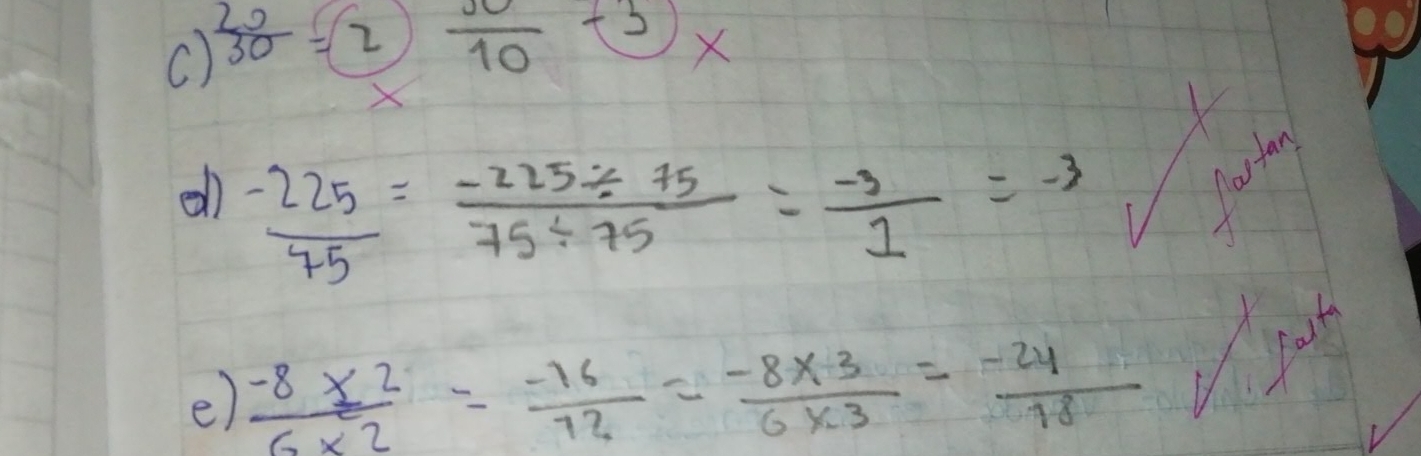 c) 20/30 = 2 30/10 - 3 x
x
d) -225/75 = -225÷75/75÷75 = -3/1 = -3 faltan
e) -8 x 2/6 x 2 = -16/12 = -8 x 3/6 x 3 = -24/18 falta